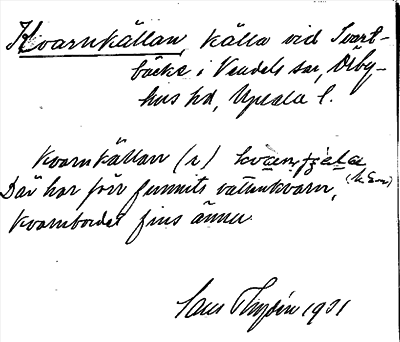 Kvarnkällan, källa vid Svart-
bäck i Vendels sn, Örby-
hus hd, Upsala l.
Kvarnkällan (r)
Där har förr funnits vattenkvarn,
Kvarnbordet fins ännu
1931